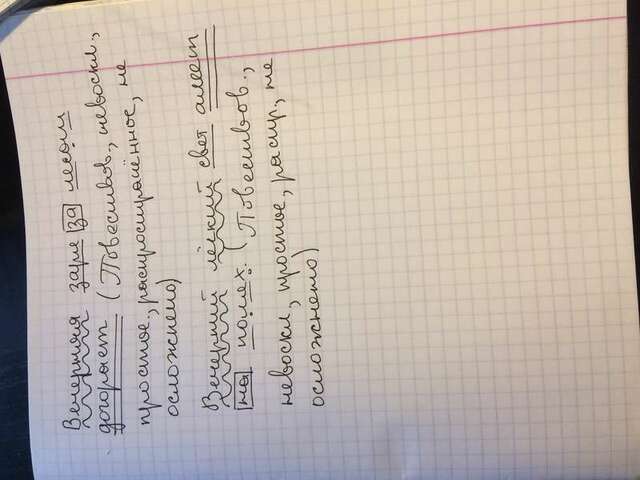 Вечерняя заря за лесом
догорает (Повеств., невоскл.,
простое, распространённое, не
осложнено)
Вечерний лёгкий свет алеет
на полях. (Повеств.,
невоскл, простое, распр, не
осложнено)